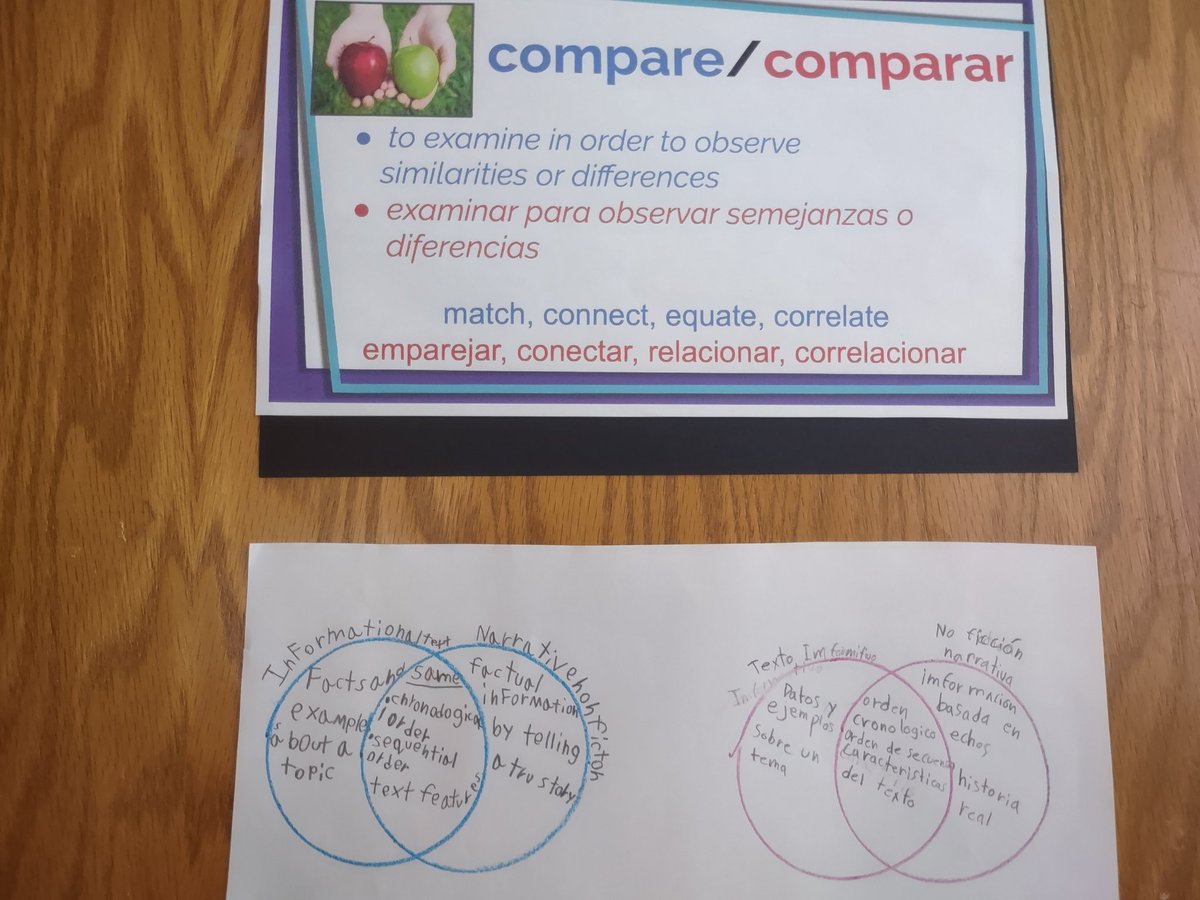 compare/comparar
• to examine in order to observe
similarities or differences
• examinar para observar semejanzas o
diferencias
match, connect, equate, correlate
emparejar, conectar, relacionar, correlacionar
InFormational text
Facts and
examples
about a
topic
same
• chronological
order
• sequential
order
text features
Narrative nonfictoh
factual
inFormation
by telling
a tru story
Texto Imformitivo
Datos y
ejemplos
sobre un
tema
orden
cronologico
orden de secuensa
caracteristicas
del texto
No ficción
narrativa
imformación
basada en
echos
historia
real